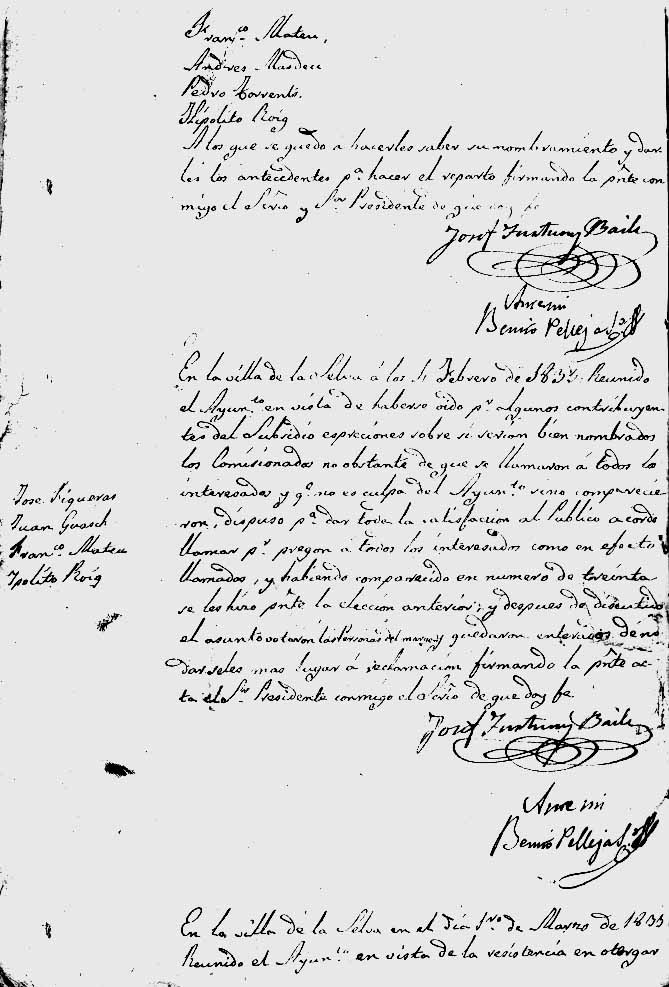 Franco Mateu,
Andres Masdeu
Pedro Torrents.
Hipolito Roig
A los que se quedo a hacerles saber su nombramiento y dar
les los antecedentes pa hacer el reparto firmando la pnte con
migo el Srio y Sor Presidente de que doy fe
Josef Fortuny Baile
Ante mi
Benito Pellejà
En la villa de la Selva á los Febrero de Reunido
el Ayunto en vista de haberse oido pr algunos contribuyen
tes del Subsidio espreciones sobre si serian bien nombrados
los Comisionados no obstante de que se llamaron á todos los
interesados y qe no es culpa del Ayunto sino comparecie
ron, dispuso pa dar toda la satisfaccion al Publico acordó
llamar pr pregon a todos los interesados como en efecto
llamados, y habiendo comparecido en numero de treinta
se les hizo pnte la eleccion anterior, y despues de discutido
el asunto votaron las Personas del margen y quedaron entendidos de no
darseles mas lugar á reclamacion firmando la pnte ac-
ta el Sor Presidente conmigo el Srio de que doy fe
Jose Figueras
Juan Guasch
Franco Mateu
Ipolito Roig
Josef Fortuny Baile
Ante mi
Benito Pellejà
En la villa de la Selva en el dia 1ro de Marzo de 1833
Reunido el Ayunto en vista de la resistencia en otorgar